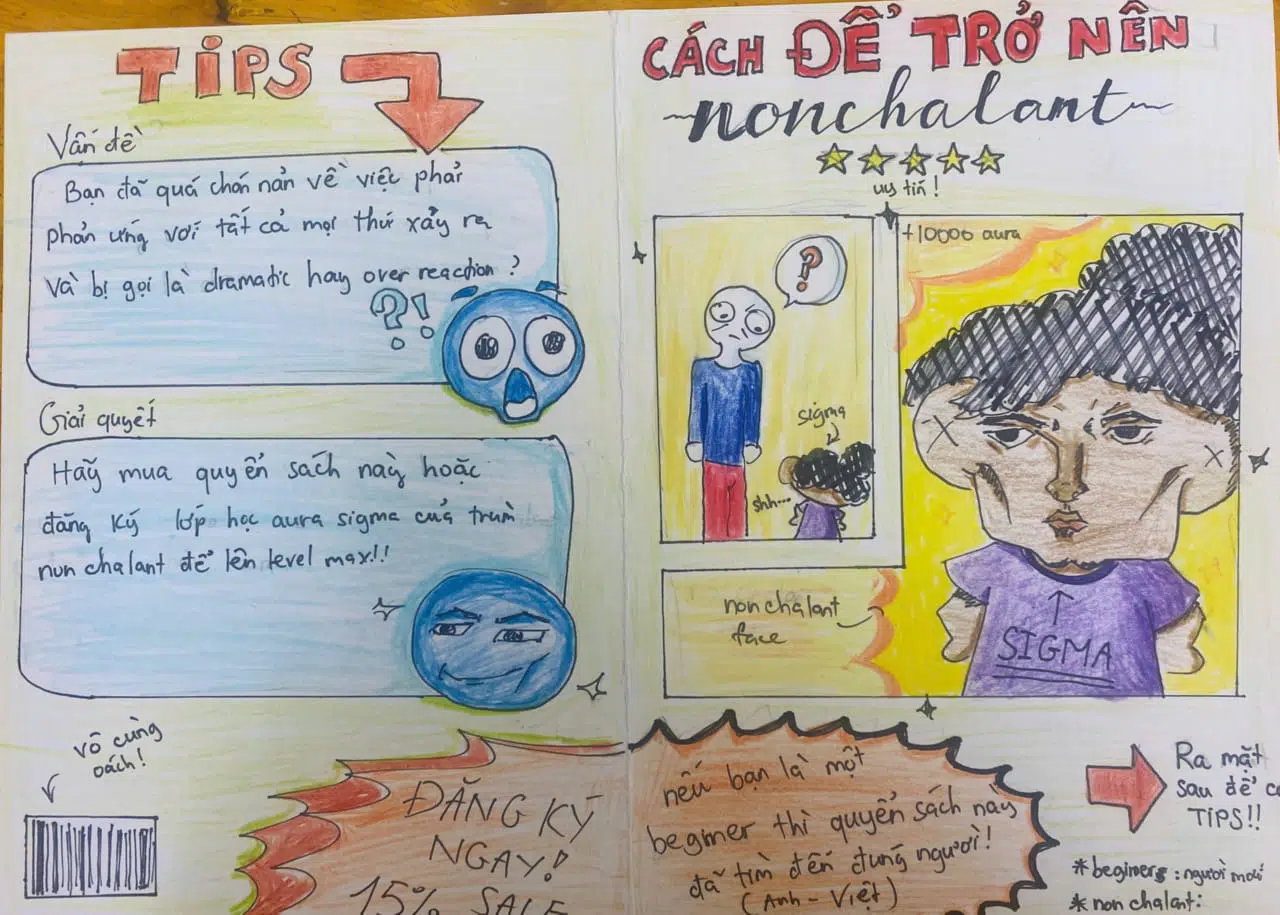 TiPS
Vấn đề
Bạn đã quá chán nản về việc phải
phản ứng với tất cả mọi thứ xảy ra
và bị gọi là dramatic hay over reaction ?
?!
Giải quyết
Hãy mua quyển sách này hoặc
đăng ký lớp học aura sigma của trùm
nonchalant để lên level max!!
vô cùng
oách!
ĐĂNG KÝ
NGAY!
15% SALE
CÁCH ĐỂ TRỞ NÊN
~nonchalant~
uy tín!
+10000 aura
?
sigma
shh...
nonchalant
face
SIGMA
nếu bạn là một
beginner thì quyển sách này
đã tìm đến đúng người!
(Anh - Việt)
Ra mặt
sau để
TiPS!!
* beginners : người mới
* nonchalant: